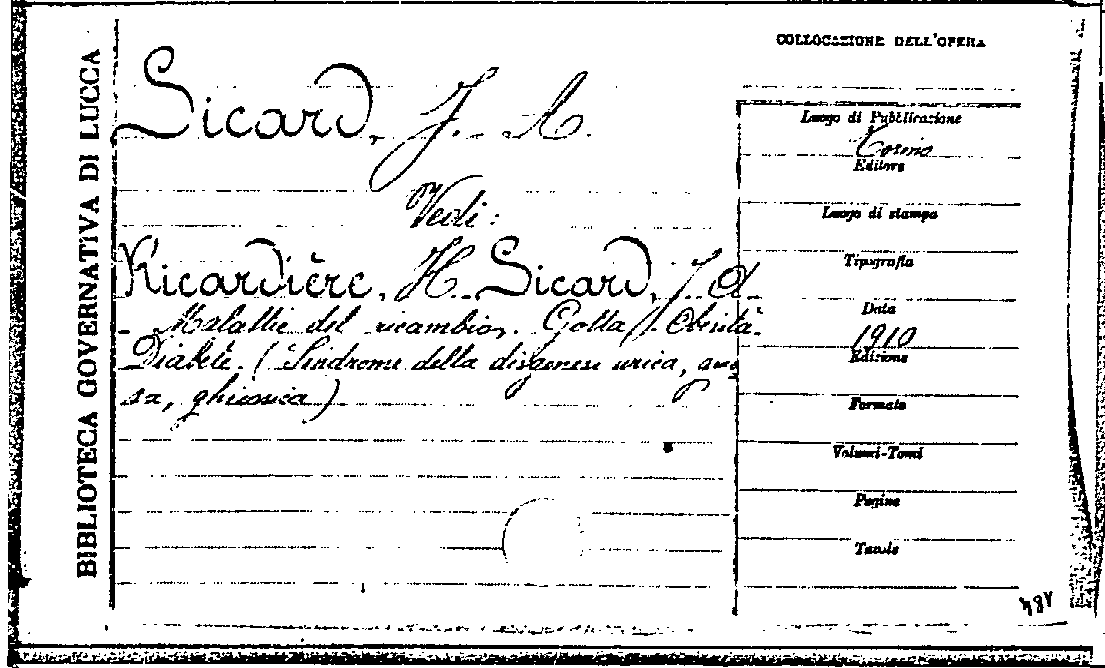 BIBLIOTECA GOVERNATIVA DI LUCCA
COLLOCAZIONE DELL'OPERA
Sicard, J. A.
Vedi:
Ricardière, H. Sicard, J. A.
- Malattie del ricambio, Gotta, Obesità
Diabete. (Sindrome della disgenesi urica,
sa,
Luogo di Pubblicazione
Torino
Editore
Luogo di stampa
Tipografia
Data
1910
Edizione
Formato
Volumi-Tomi
Pagine
Tavole